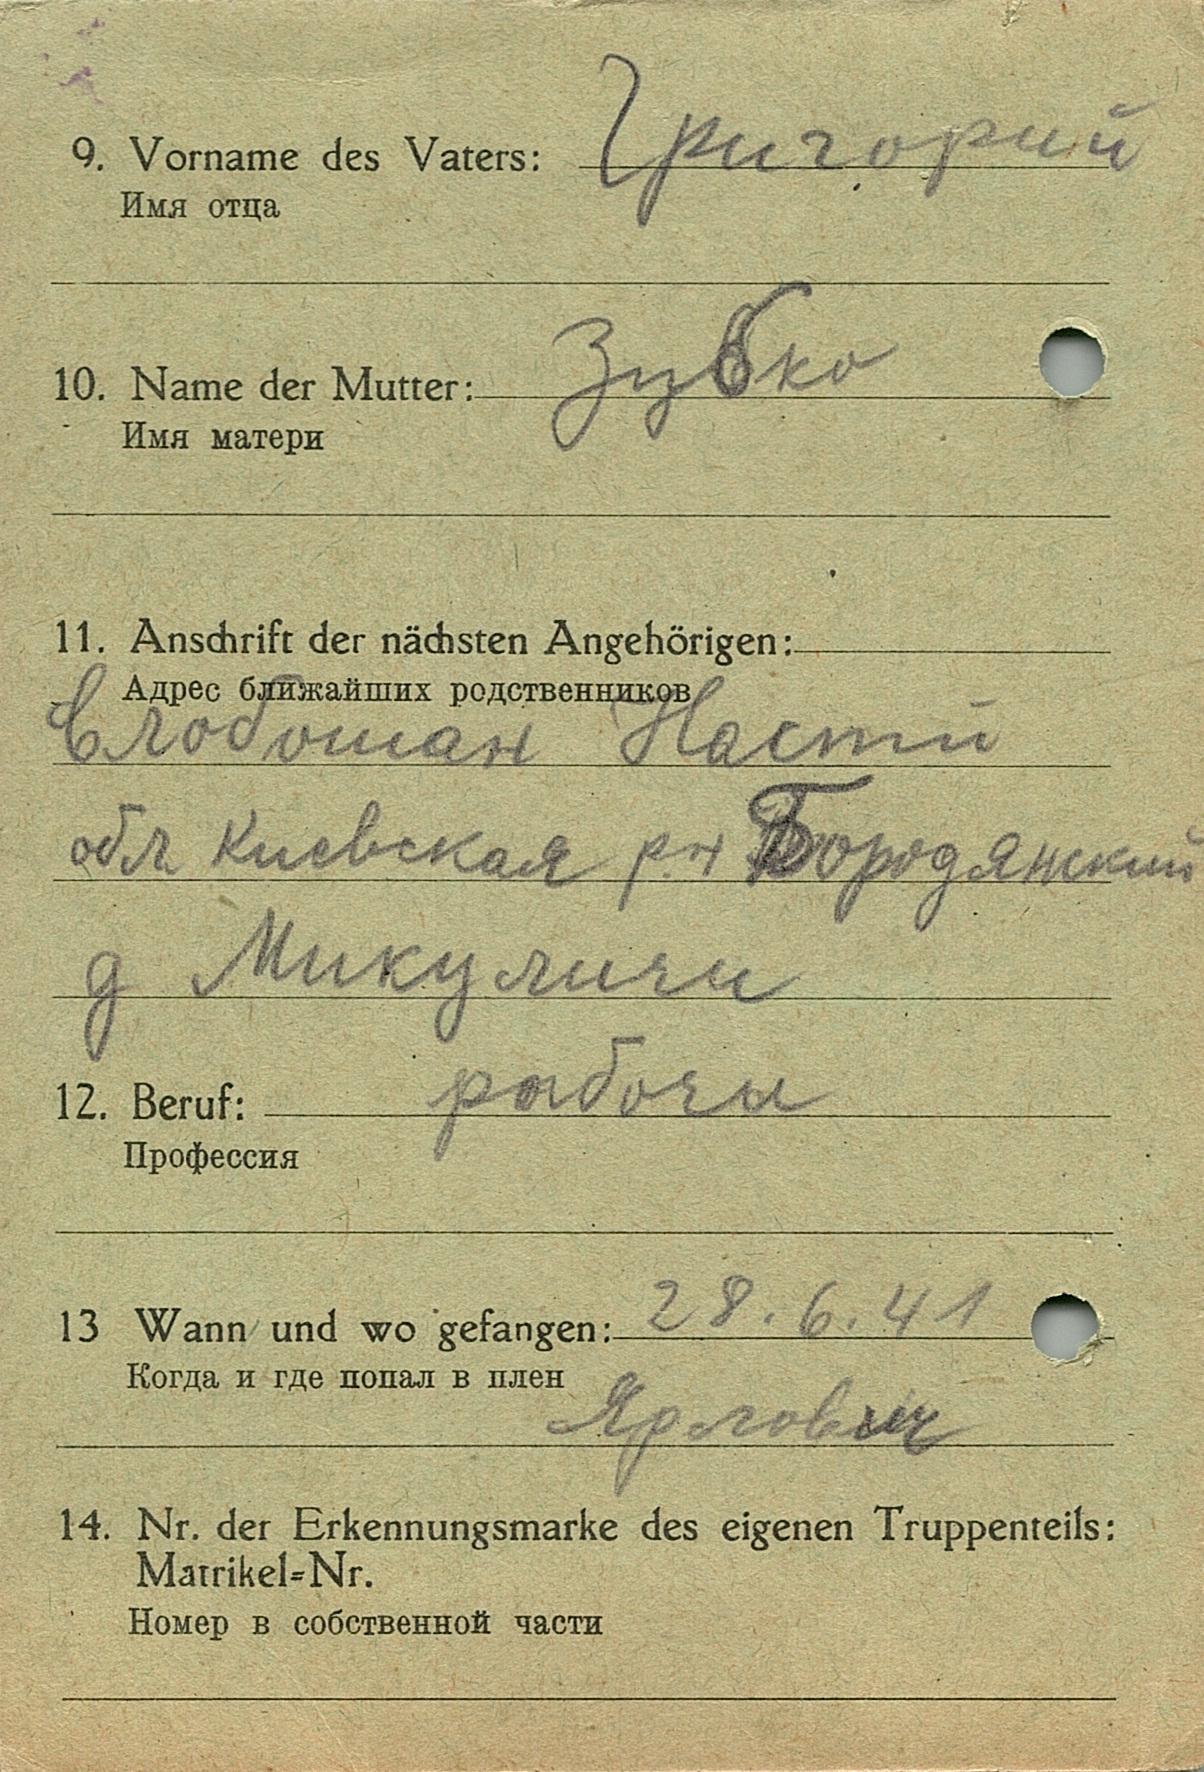 9. Vorname des Vaters: Григорий
Имя отца
10. Name der Mutter: Зубко
Имя матери
11. Anschrift der nächsten Angehörigen:
Адрес ближайших родственников
Слобошан Насти
обл Киевская р.н Бородянский
д Микуличи
12. Beruf: рабочи
Профессия
13 Wann und wo gefangen: 28.6.41
Когда и где попал в плен
14. Nr. der Erkennungsmarke des eigenen Truppenteils:
Matrikel=Nr.
Номер в собственной части